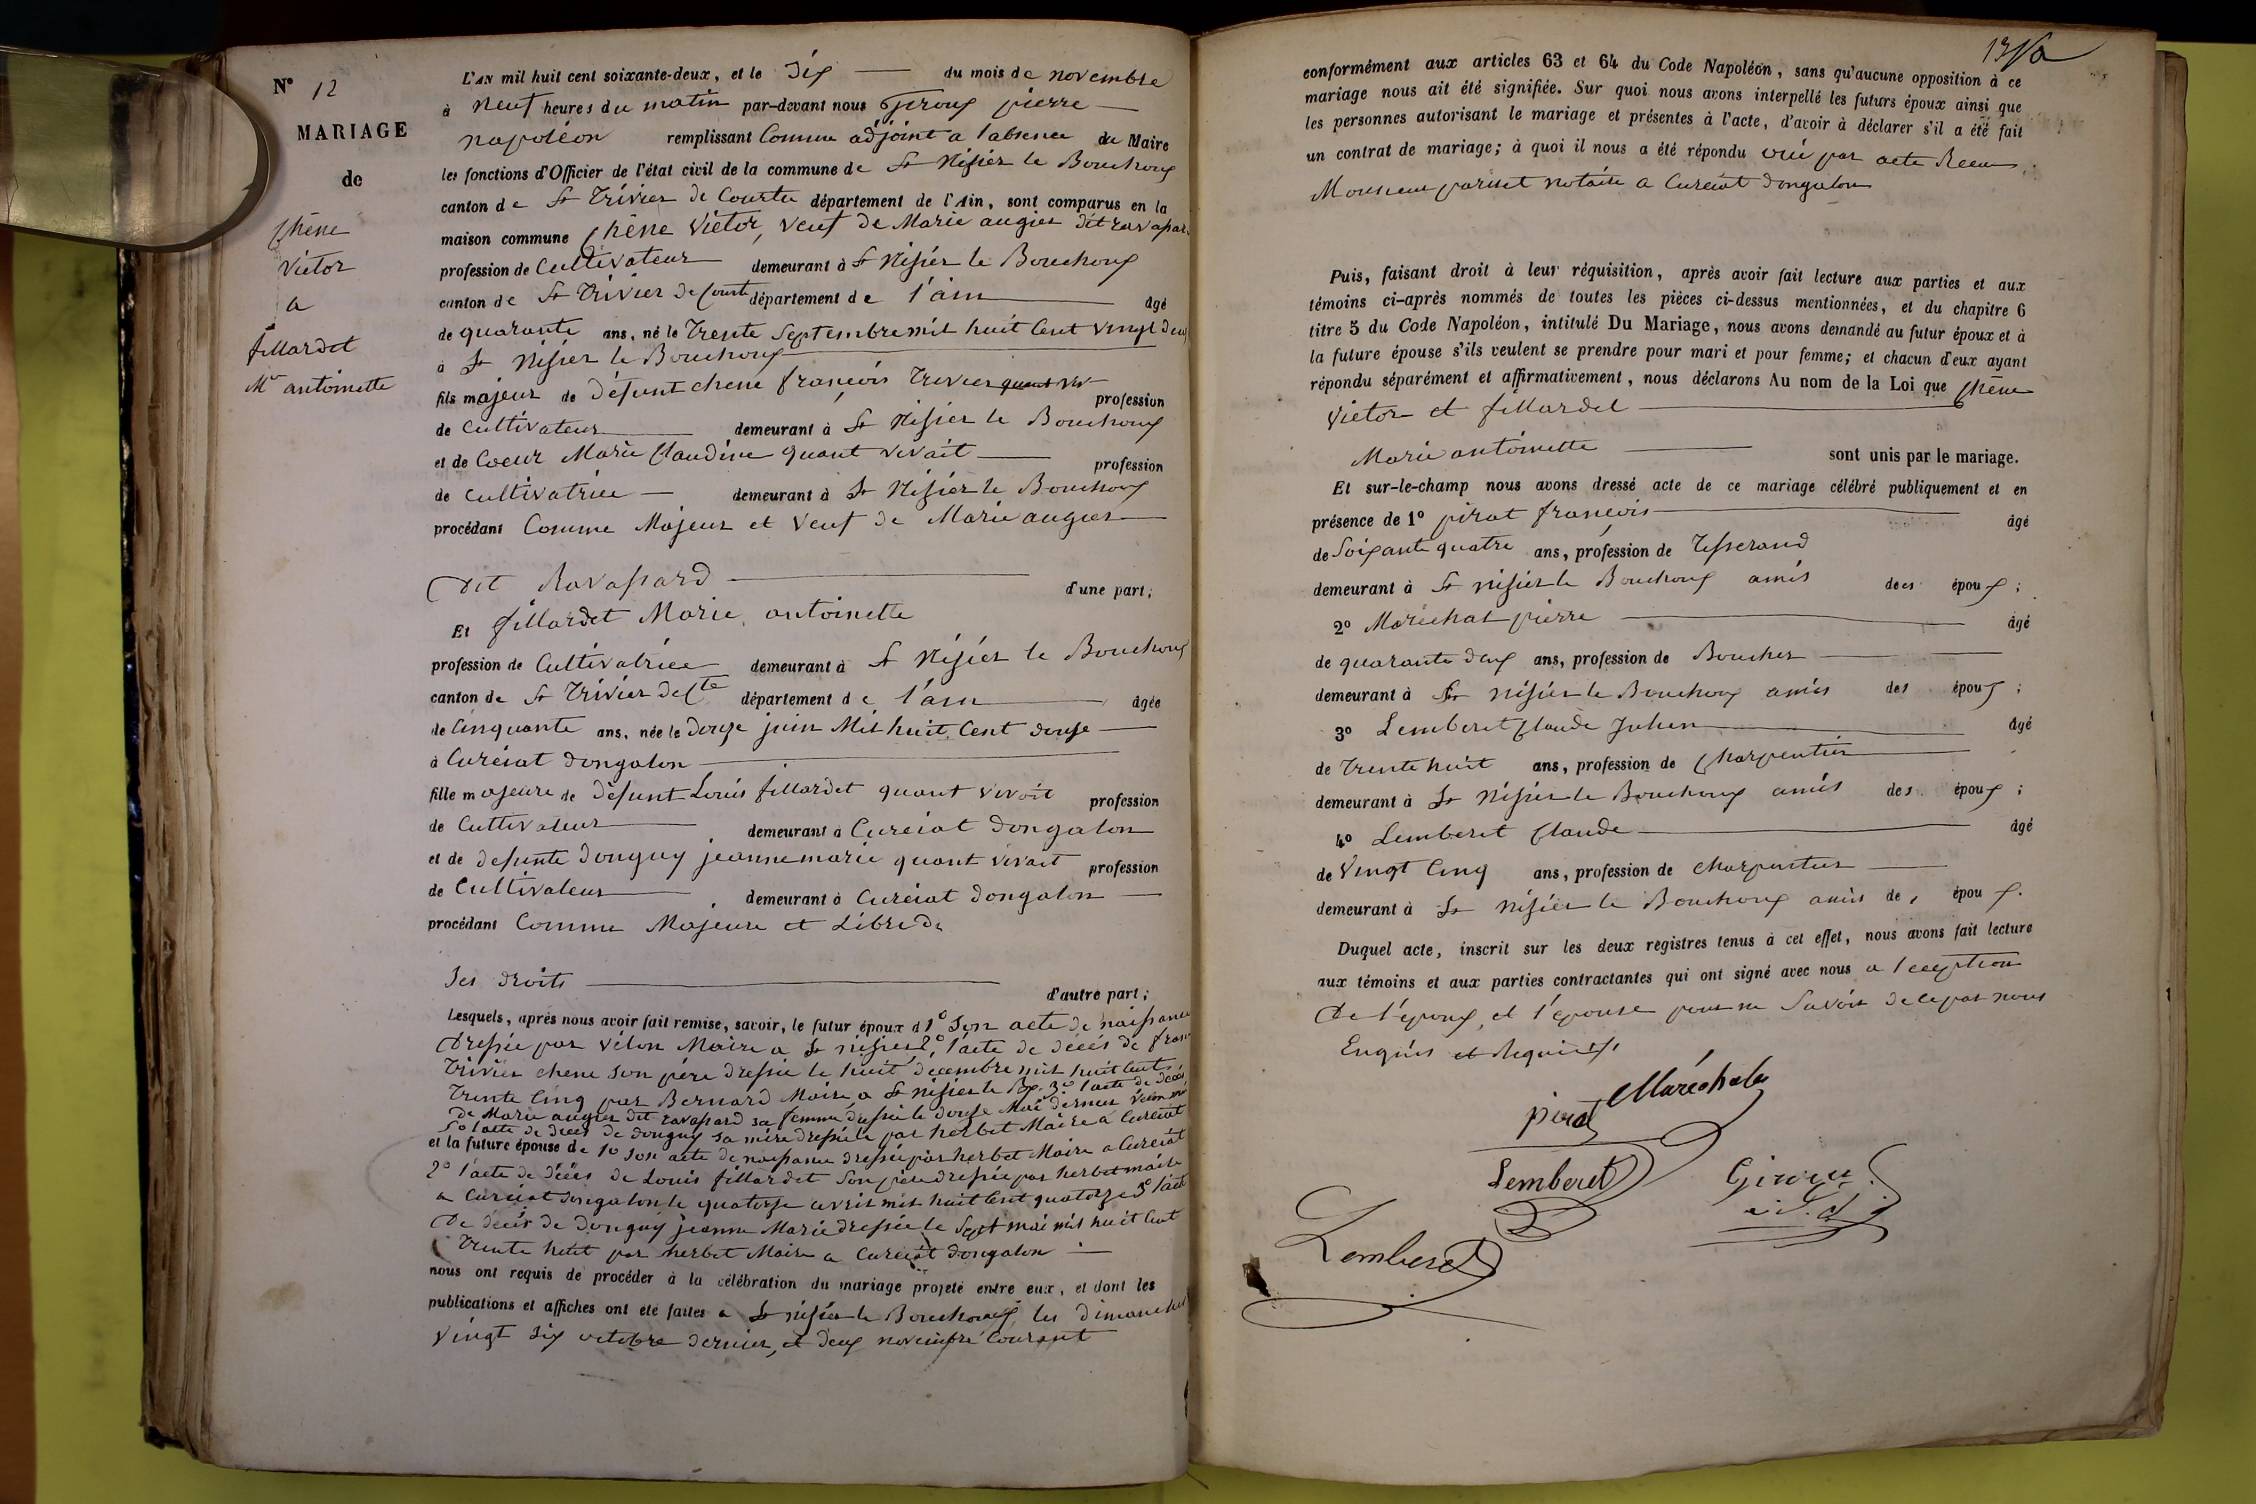 N° 12
MARIAGE
de
Chêne
Victor
a
fillardet
Mie antoinette
L'AN mil huit cent soixante-deux, et le Six du mois de novembre
à neuf heures du matin par-devant nous Giroux pierre
napoléon remplissant Comme adjoint a l'absence du Maire
les fonctions d'Officier de l'état civil de la commune de St Nisier le Bouchoux
canton de St Trivier de Courtes département de l'Ain, sont comparus en la
maison commune Chêne Victor, veuf de Marie augier dit ravassard
profession de Cultivateur demeurant à St Nisier le Bouchoux
canton de St Trivier de Courtes département de l'ain âgé
de quarante ans, né le Trente Septembre mil huit Cent vingt deux
à St Nisier le Bouchoux
fils majeur de Défunt chene françois Trivier quant viv profession
de Cultivateur demeurant à St Nisier le Bouchoux
et de Coeur Marie Claudine quant vivait profession
de Cultivatrice demeurant à St Nisier le Bouchoux
procédant Comme Majeur et Veuf de Marie augier
Dit Ravassard d'une part;
Et fillardet Marie antoinette
profession de Cultivatrice demeurant à St Nisier le Bouchoux
canton de St Trivier de Cte département de l'ain âgée
de Cinquante ans, née le Douze juin Mil huit Cent douze
à Curciat dongalon
fille majeure de Défunt Louis fillardet quant vivoit profession
de Cultivateur demeurant à Curciat Dongalon
et de defunte Donguy jeanne marie quant vivait profession
de Cultivateur demeurant à Curciat Dongalon
procédant Comme Majeure et Libre de
Ses droits d'autre part;
Lesquels, après nous avoir fait remise, savoir, le futur époux d 1° Son acte de naissance
Dressée par Vélon Maire a St nisier 2° l'acte de décés de fran
Trivier chene Son père dressée le huit decembre mil huit Cent
Trente Cinq par Bernard Maire a St nisier le Bx. 3° l'acte de décès
de Marie augier dit ravassard sa femme dressée le douze Mai dernier
5° l'acte de decés de donguy sa mère dressée par herbet Maire a Curciat
et la future épouse de 1° Son acte de naissance dressée par herbet Maire a Curciat
2° l'acte de décés de Louis fillardet Son père dressée par herbet maire
a Curciat dongalon le quatorze avril mil huit Cent quatorze 3° l'acte
De decés de Donguy jeanne Marie dressée le Sept mai mil huit Cent
Trente huit par herbet Maire a Curciat dongalon
nous ont requis de procéder à la célébration du mariage projeté entre eux, et dont les
publications et affiches ont été faites a St nisier le Bouchoux, les dimanches
vingt Six octobre dernier, et deux novembre Courant
conformément aux articles 63 et 64 du Code Napoléon, sans qu'aucune opposition à ce
mariage nous ait été signifiée. Sur quoi nous avons interpellé les futurs époux ainsi que
les personnes autorisant le mariage et présentes à l'acte, d'avoir à déclarer s'il a été fait
un contrat de mariage; à quoi il nous a été répondu oui par acte Recu
Monsieur notaire a Curciat dongalon
Puis, faisant droit à leur réquisition, après avoir fait lecture aux parties et aux
témoins ci-après nommés de toutes les pièces ci-dessus mentionnées, et du chapitre 6
titre 5 du Code Napoléon, intitulé Du Mariage, nous avons demandé au futur époux et à
la future épouse s'ils veulent se prendre pour mari et pour femme; et chacun d'eux ayant
répondu séparément et affirmativement, nous déclarons Au nom de la Loi que Chêne
Victor et fillardet
Marie antoinette sont unis par le mariage.
Et sur-le-champ nous avons dressé acte de ce mariage célébré publiquement et en
présence de 1° pirat françois âgé
de Soixante quatre ans, profession de Tisserand
demeurant à St nisier le Bouchoux amis des époux;
2° Maréchal pierre âgé
de quarante deux ans, profession de Boucher
demeurant à St nisier le Bouchoux amis des époux;
3° Lemberet Claude Julien âgé
de Trente huit ans, profession de Charpentier
demeurant à St Nisier le Bouchoux amis des époux;
4° Lemberet Claude âgé
de Vingt Cinq ans, profession de charpentier
demeurant à St nisier le Bouchoux amis des époux.
Duquel acte, inscrit sur les deux registres tenus à cet effet, nous avons fait lecture
aux témoins et aux parties contractantes qui ont signé avec nous a l'exeption
De l'époux, et l'épouse pour ne Savoir de ce par nous
Enquis et Requis
Maréchal
pirat
Lemberet
Giroux
Lemberet